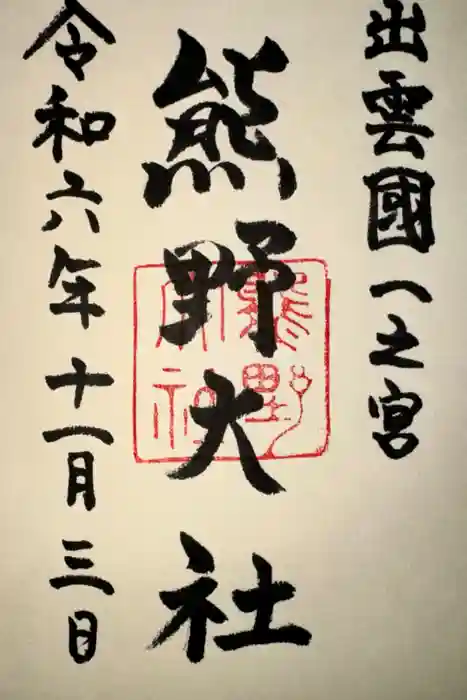 出雲國一之宮
熊野大社
熊野大社
令和六年十一月三日